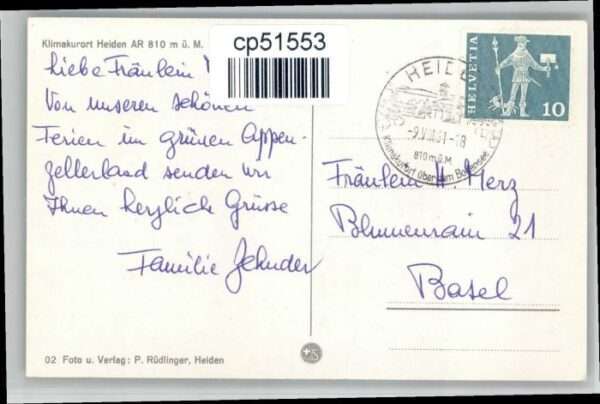 Klimakurort Heiden AR 810 m ü. M.
cp51553
Liebe Fräulein
Von unseren schönen
Ferien im grünen Appen-
zellerland senden wir
Ihnen herzliche Grüsse
Familie Zehnder
02 Foto u. Verlag: P. Rüdlinger, Heiden
HELVETIA
10
HEIDEN
-9.VIII.61-18
810 m ü. M.
Klimakurort über dem Bodensee
Fräulein H. Herz
Blumenrain 21
Basel